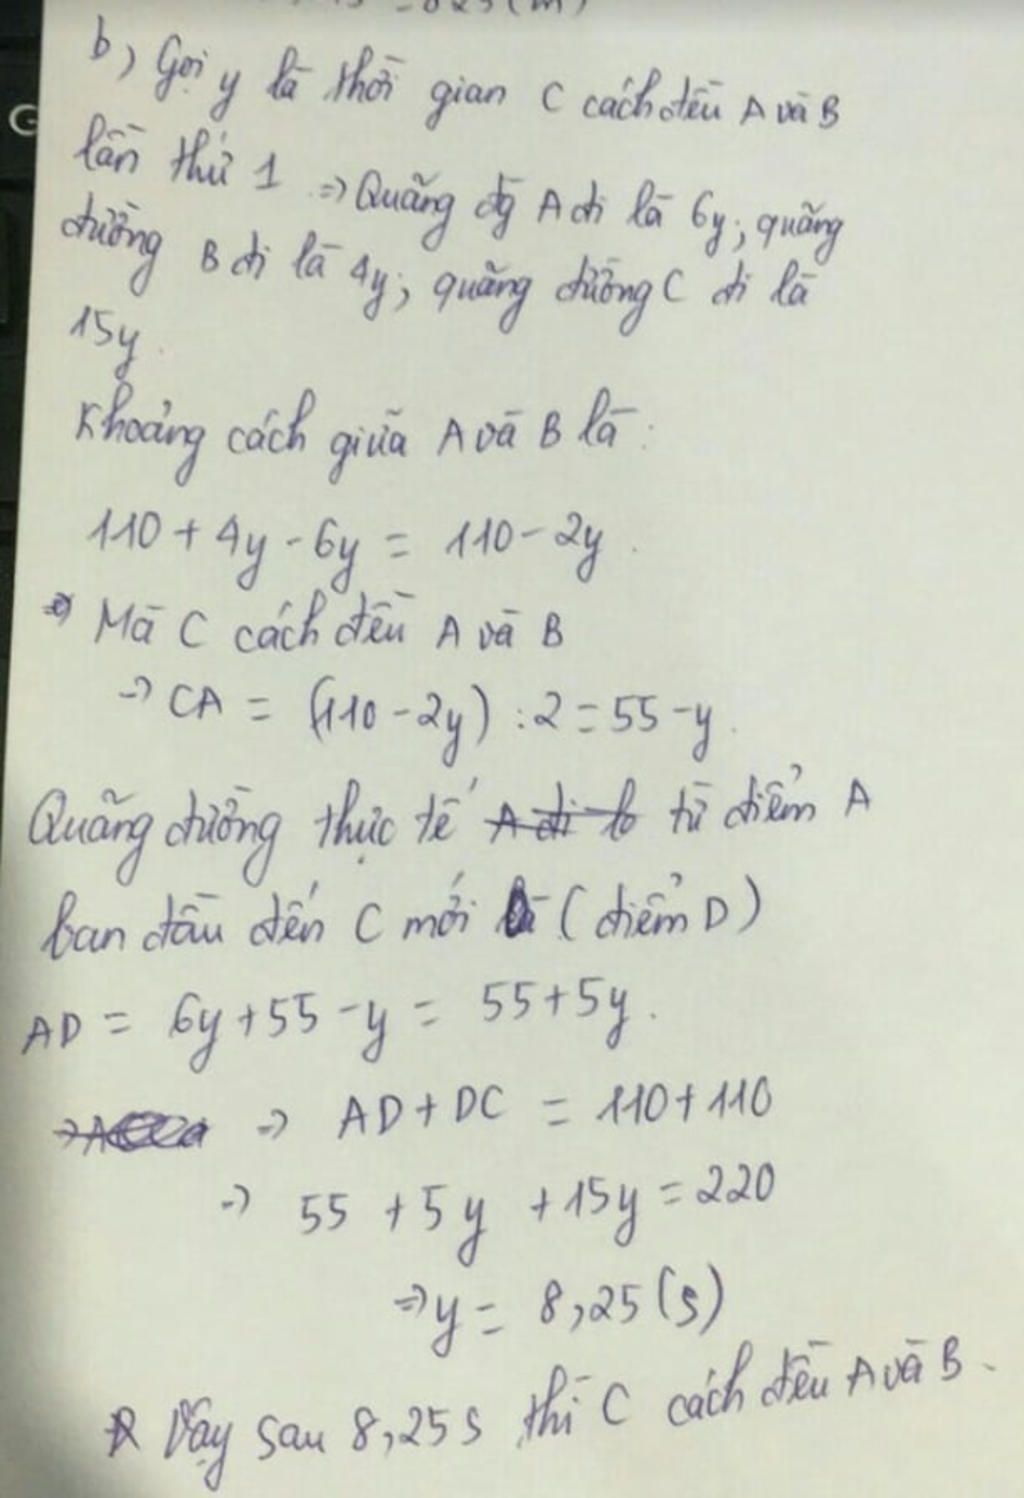 b) Gọi y là thời gian C cách đều A và B
lần thứ 1 => Quãng đg A đi là 6y; quãng
đường B đi là 4y; quãng đường C đi là
15y.
Khoảng cách giữa A và B là:
110 + 4y - 6y = 110 - 2y.
=> Mà C cách đều A và B
-> CA = (110 - 2y) : 2 = 55 - y.
Quãng đường thực tế từ điểm A
ban đầu đến C mới (điểm D)
AD = 6y + 55 - y = 55 + 5y.
=> AD + DC = 110 + 110
-> 55 + 5y + 15y = 220
=> y = 8,25 (s)
Vậy sau 8,25 s thì C cách đều A và B.